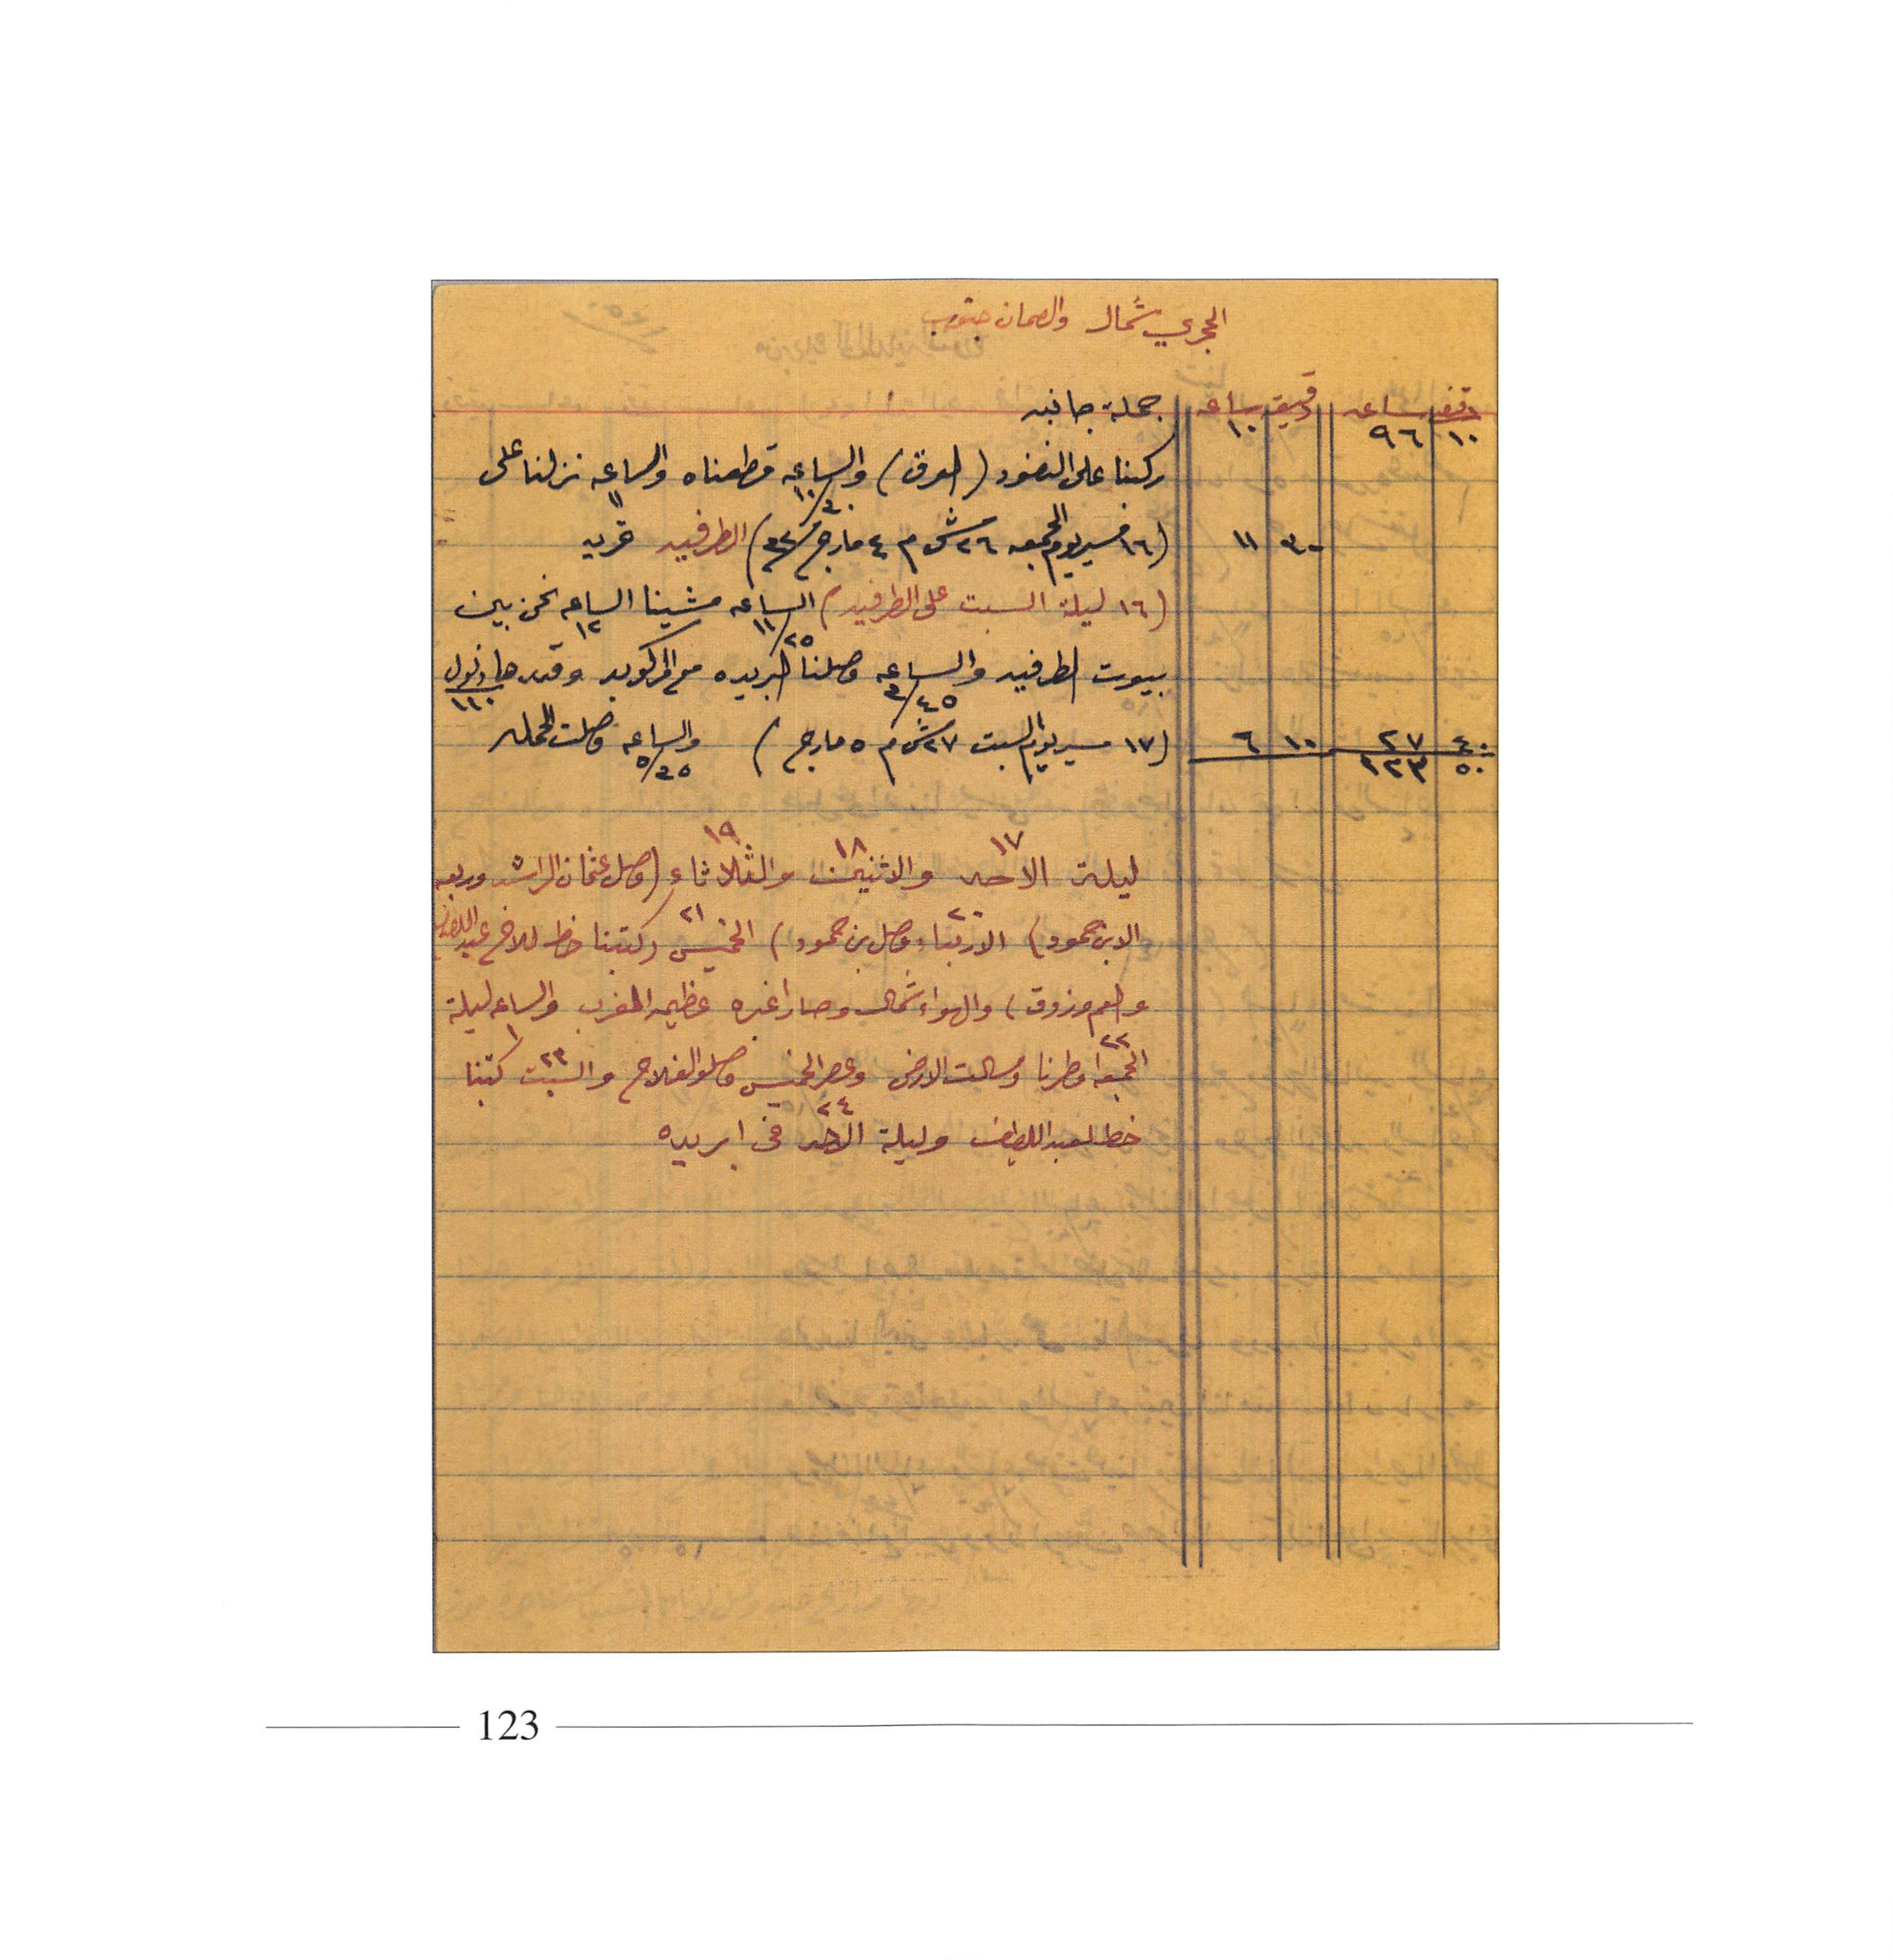 الحجري شمال والصمان جنوب
دقيقه ساعه دقيقه ساعه جملة جانبه
١٠ ٩٦ ١٠
ركبنا على النفود (العرق) والساعه ١٠/٤٠ قطعناه والساعه ١١ نزلنا على
٣٠ ١١ (١٦ مسير يوم الجمعه ٢٦ ش م ٤ مارج ٣٢) الطرفيه قريه
(١٦ ليلة السبت على الطرفيه) الساعه ١١/٢٥ مشينا الساعه ١٢ نحن بين
بيوت الطرفيه والساعه ٣/٤٥ وصلنا ابريده مع المركوب وقدرها نول ١١٠
٤٠ ٢٧ ١٠ ٦ (١٧ مسير يوم السبت ٢٧ ش م ٥ مارج) والساعه ٥/٣٥ وصلت الحمله
٥٠ ١٢٣
ليلة الاحد ١٧ والاثنين ١٨ والثلاثاء ١٩ (وصل عثمان الراشد وربعه
الابن حمود) الاربعاء ٢٠ (وصل بن حمود) الخميس ٢١ (كتبنا خط للاخ عبداللطيف
والعم مرزوق) والهواء شمال وصار اغبره عظيمه المغرب والساعه ١ ليلة
الجمعه ٢٢ امطرنا وسالت الارض وعصر الخميس وصلو الفلاح والسبت ٢٣ كتبنا
خط لعبداللطيف وليلة الاحد ٢٤ في ابريده
123